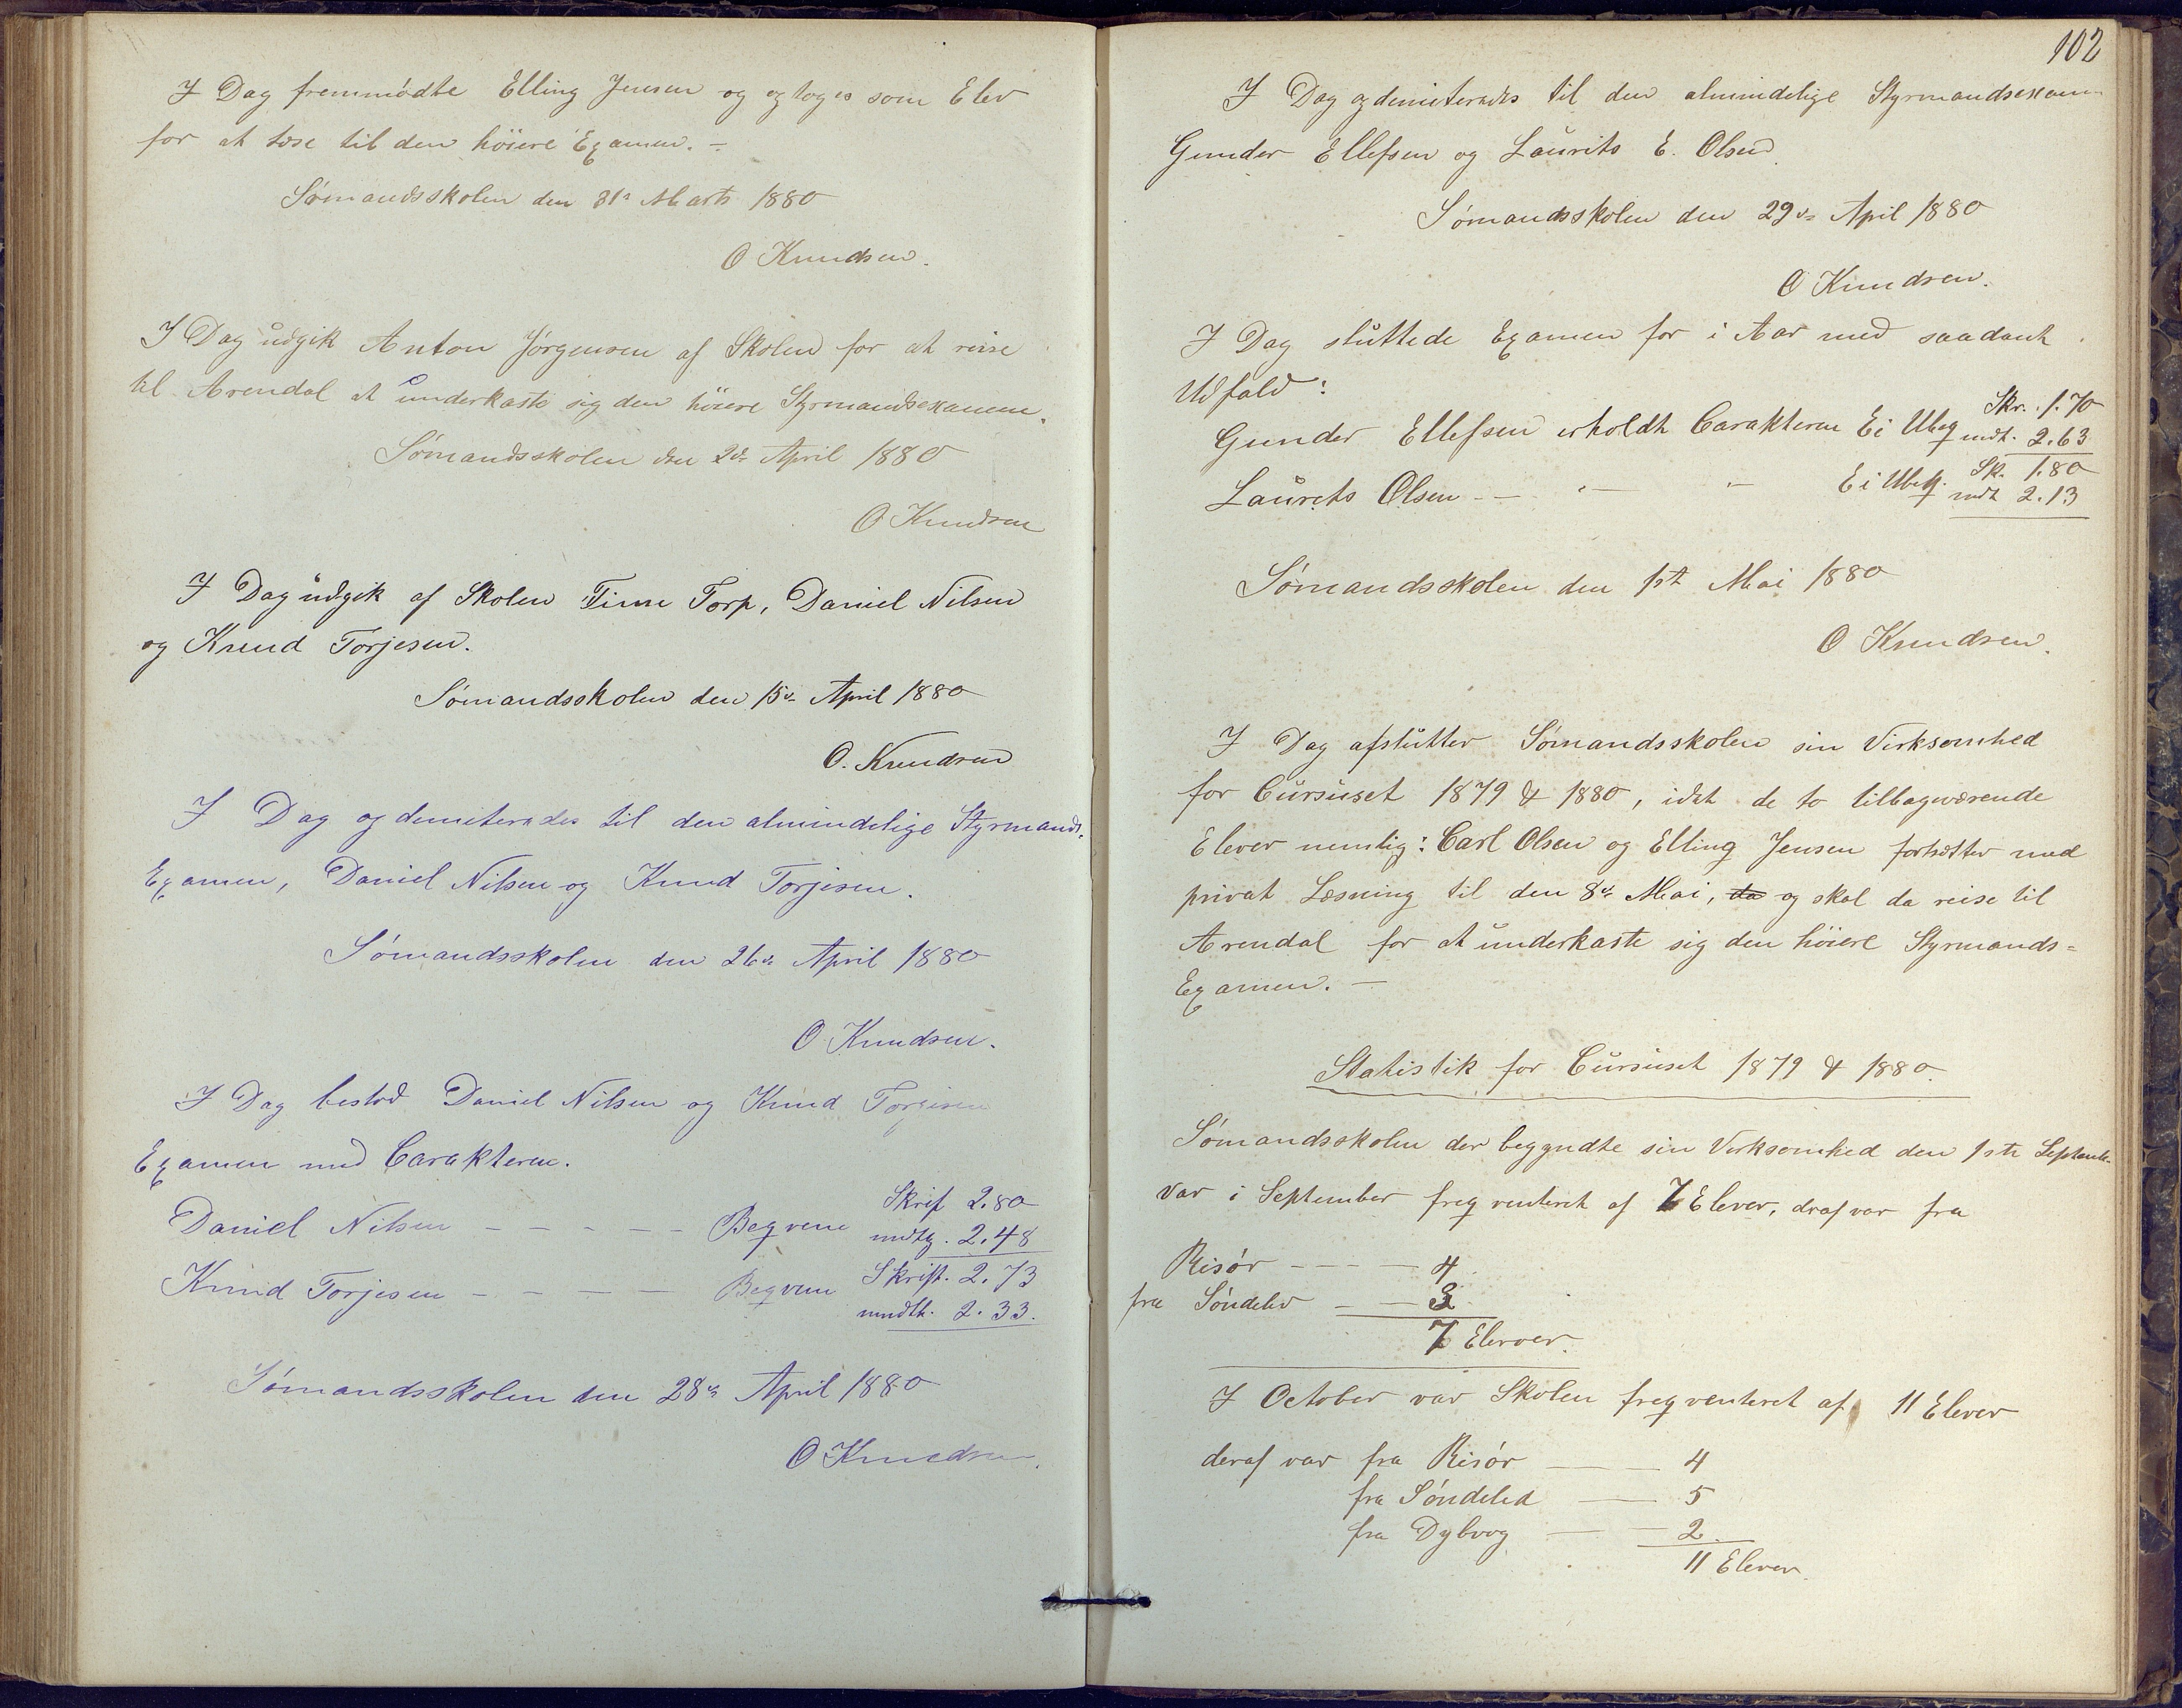 I Dag fremmödte Elling Jensen og optoges som Elev
for at læse til den höiere Examen. –
Sömandsskolen den 31s Marts 1880
O Knudsen.
I Dag udgik Anton Jörgensen af Skolen for at reise
til Arendal at underkaste sig den höiere Styrmandsexamen.
Sömandsskolen den 2de April 1880
O Knudsen
I Dag udgik af Skolen Time Torp, Daniel Nilsen
og Knud Torjesen.
Sömandsskolen den 15de April 1880
O. Knudsen
I Dag opdemiterades til den almindelige Styrmands-
Examen, Daniel Nilsen og Knud Torjesen.
Sömandsskolen den 26de April 1880
O Knudsen.
I Dag bestod Daniel Nilsen og Knud Torjesen
Examen med Carakteren.
Daniel Nilsen – – – – – Beqvem Skrif 2.80
mdtg. 2.48
Knud Torjesen – – – – Beqvem Skrift. 2.73
mundtl. 2.33.
Sömandsskolen den 28de April 1880
O Knudsen.
102
I Dag opdemiterades til den almindelige Styrmandsexamen
Gunder Ellefsen og Laurits E. Olsen.
Sömandsskolen den 29de April 1880
O Knudsen.
I Dag sluttede Examen for i Aar med saadant
Udfald:
Gunder Ellefsen erholdt Carakteren Ei Ubeq Skr. 1.70
mdt. 2.63
Laurits Olsen – – " – " – Ei Ubeq. Sk. 1.80
mdt 2.13
Sömandsskolen den 1ste Mai 1880
O Knudsen.
I Dag afslutter Sömandsskolen sin Virksomhed
for Cursuset 1879 & 1880, idet de to tilbageværende
Elever nemlig: Carl Olsen og Elling Jensen fortsætter med
privat Læsning til den 8de Mai, da og skal da reise til
Arendal for at underkaste sig den höiere Styrmands=
Examen. –
Statistik for Cursuset 1879 & 1880.
Sömandsskolen der begyndte sin Virksomhed den 1ste Septemb.
var i September freqventeret af 7 Elever, draf var fra
Risör – – – – 4
fra Söndeled – – 3
7 Elever.
I October var Skolen freqventeret af 11 Elever
deraf var fra Risör – – 4
fra Söndeled – – 5
fra Dybvog – – 2
11 Elever.